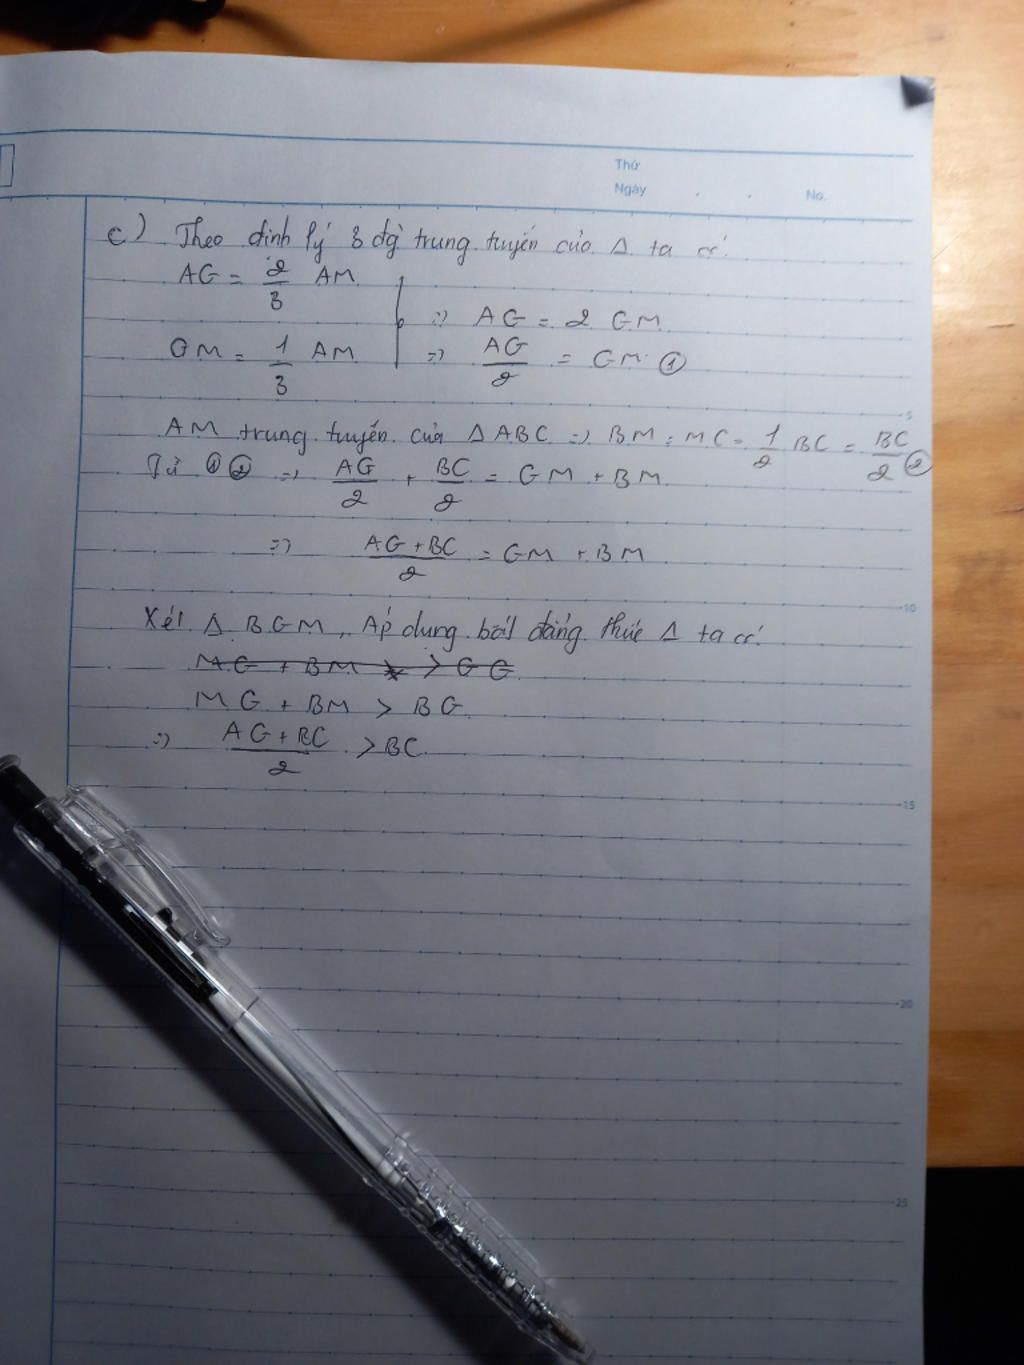 Thứ
Ngày . . No.
c) Theo định lý 3 đg` trung tuyến của Δ ta có:
AG = 2/3 AM
GM = 1/3 AM
=> AG = 2 GM
=> AG/2 = GM ①
5
AM trung tuyến của Δ ABC => BM = MC = 1/2 BC = BC/2 ②
Từ ① ② => AG/2 + BC/2 = GM + BM
=> AG + BC/2 = GM + BM
10
Xét Δ BGM, Áp dụng bất đẳng thức Δ ta có:
MG + BM > GG
MG + BM > BG
=> AG + BC/2 > BC
15
20
25